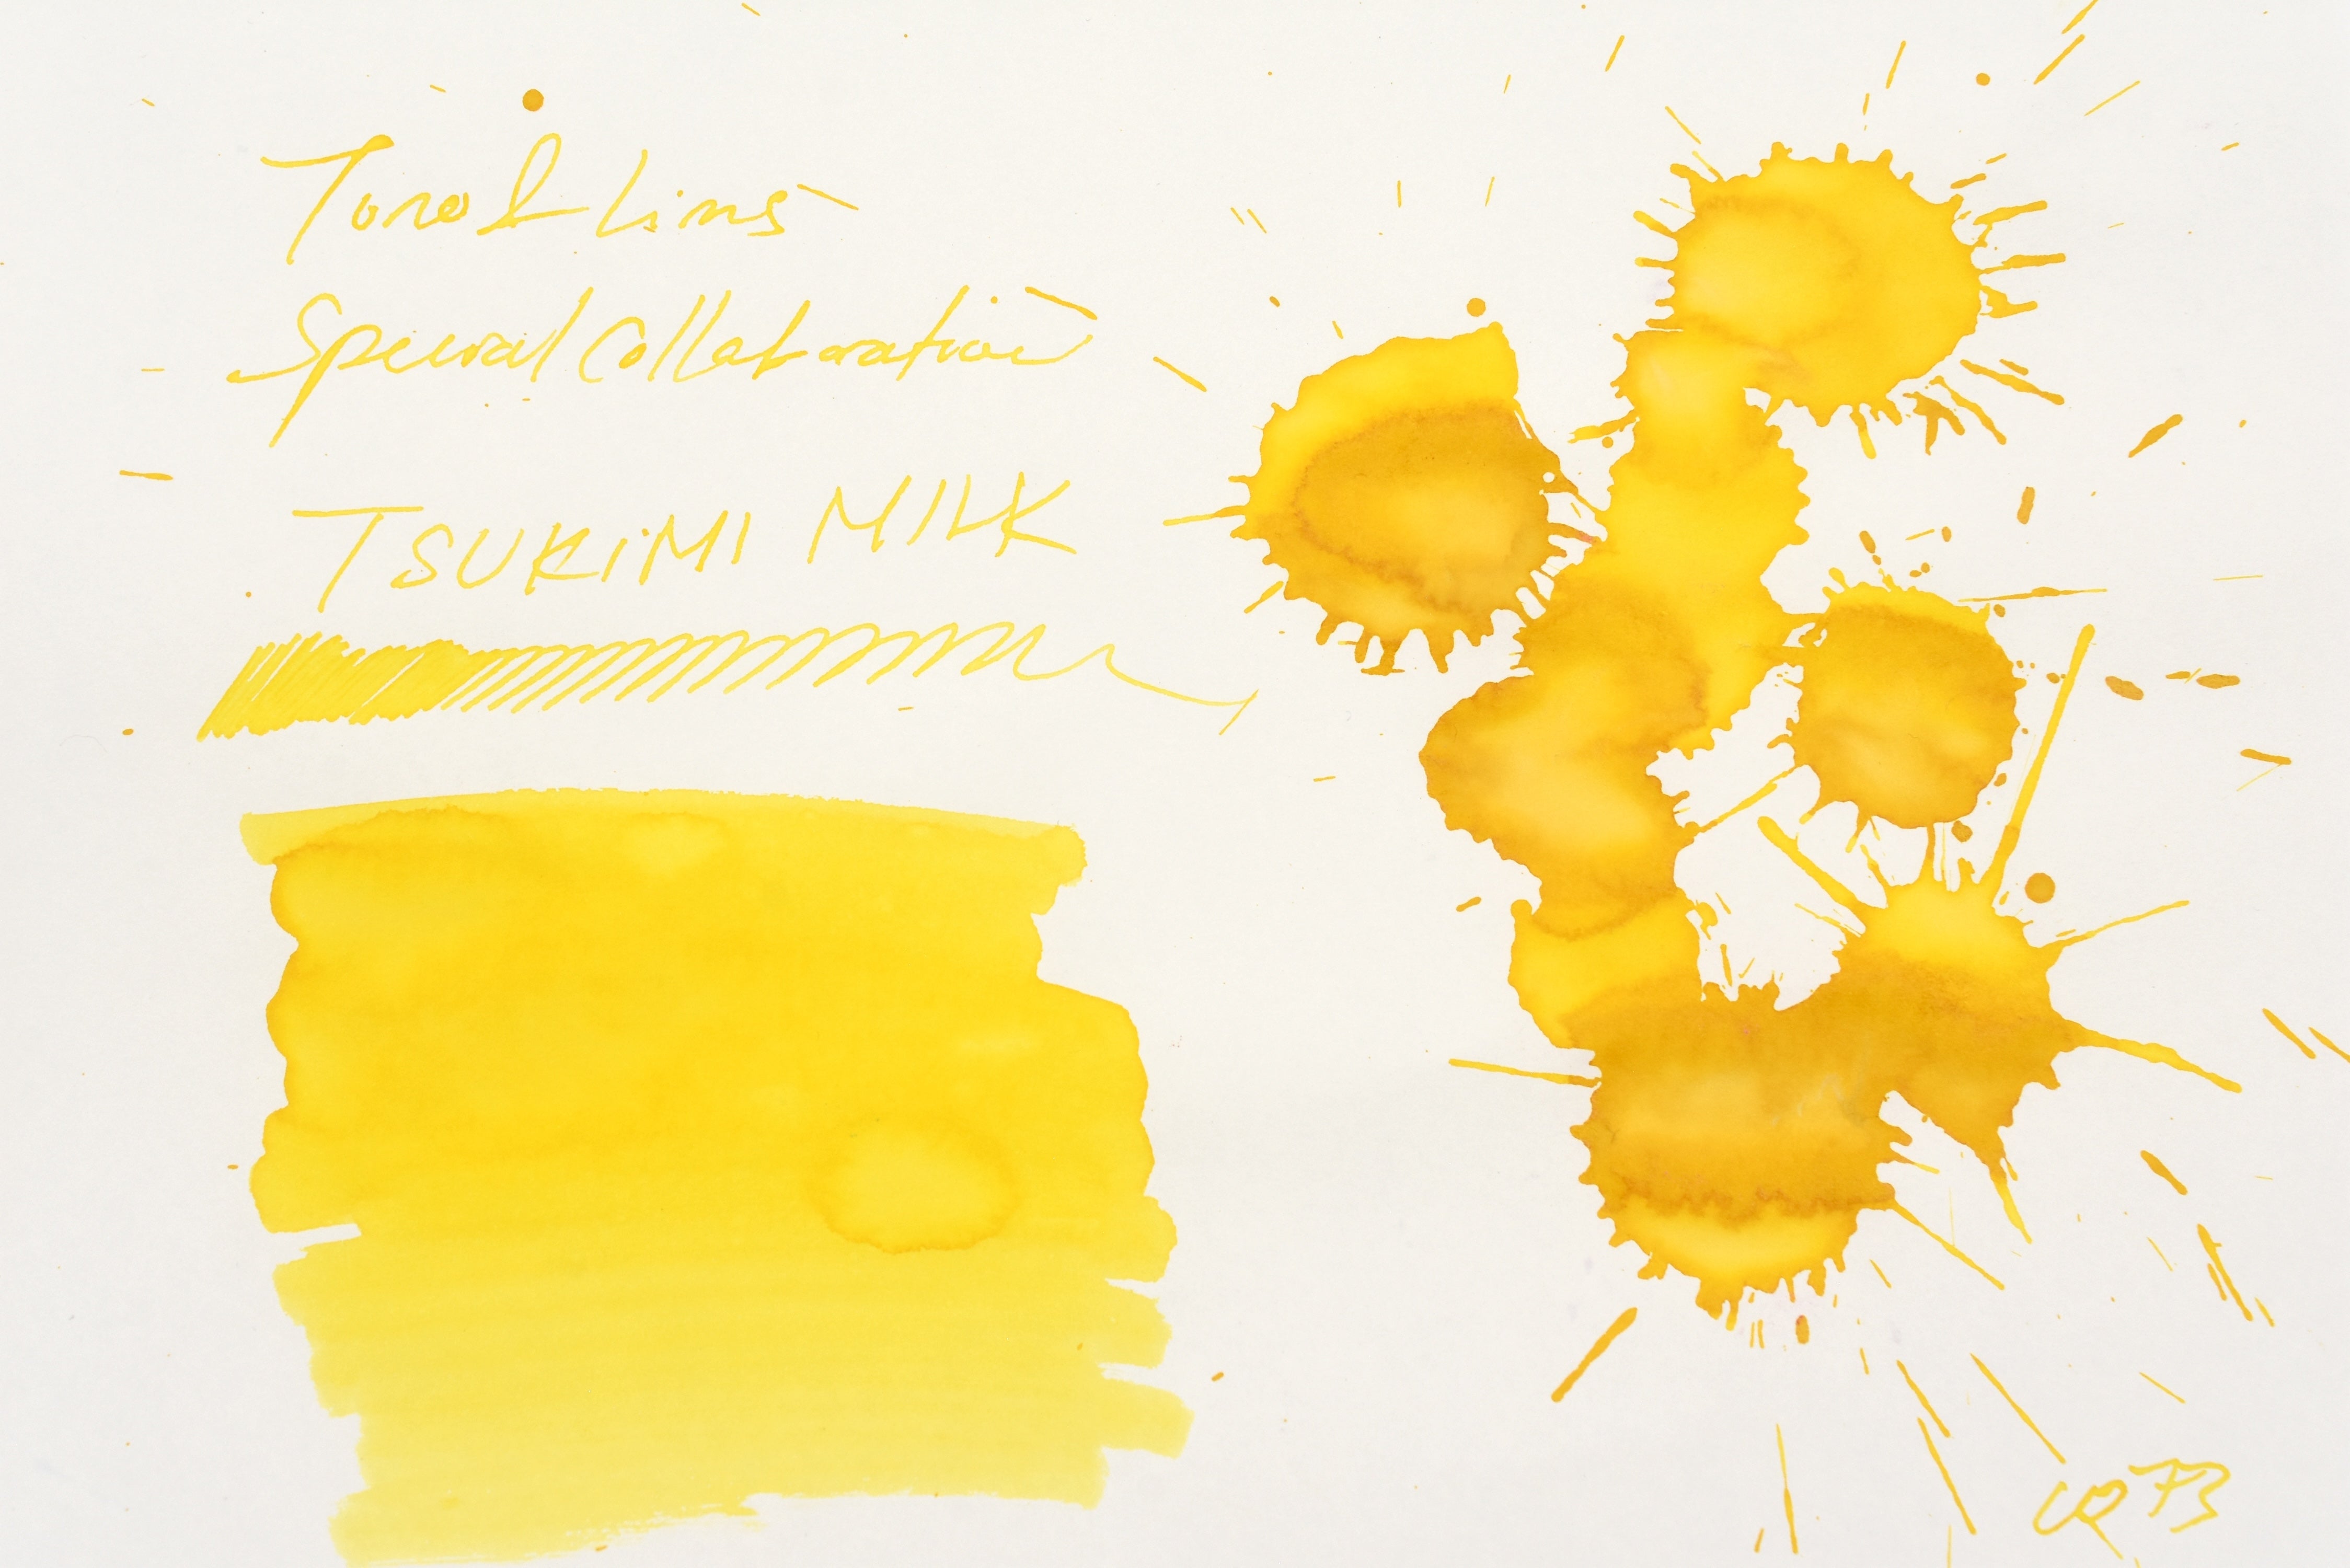 Tono & Lims
Special Collaboration
TSUKIMI MILK